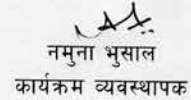 नमुना भुसाल
कार्यक्रम व्यवस्थापक